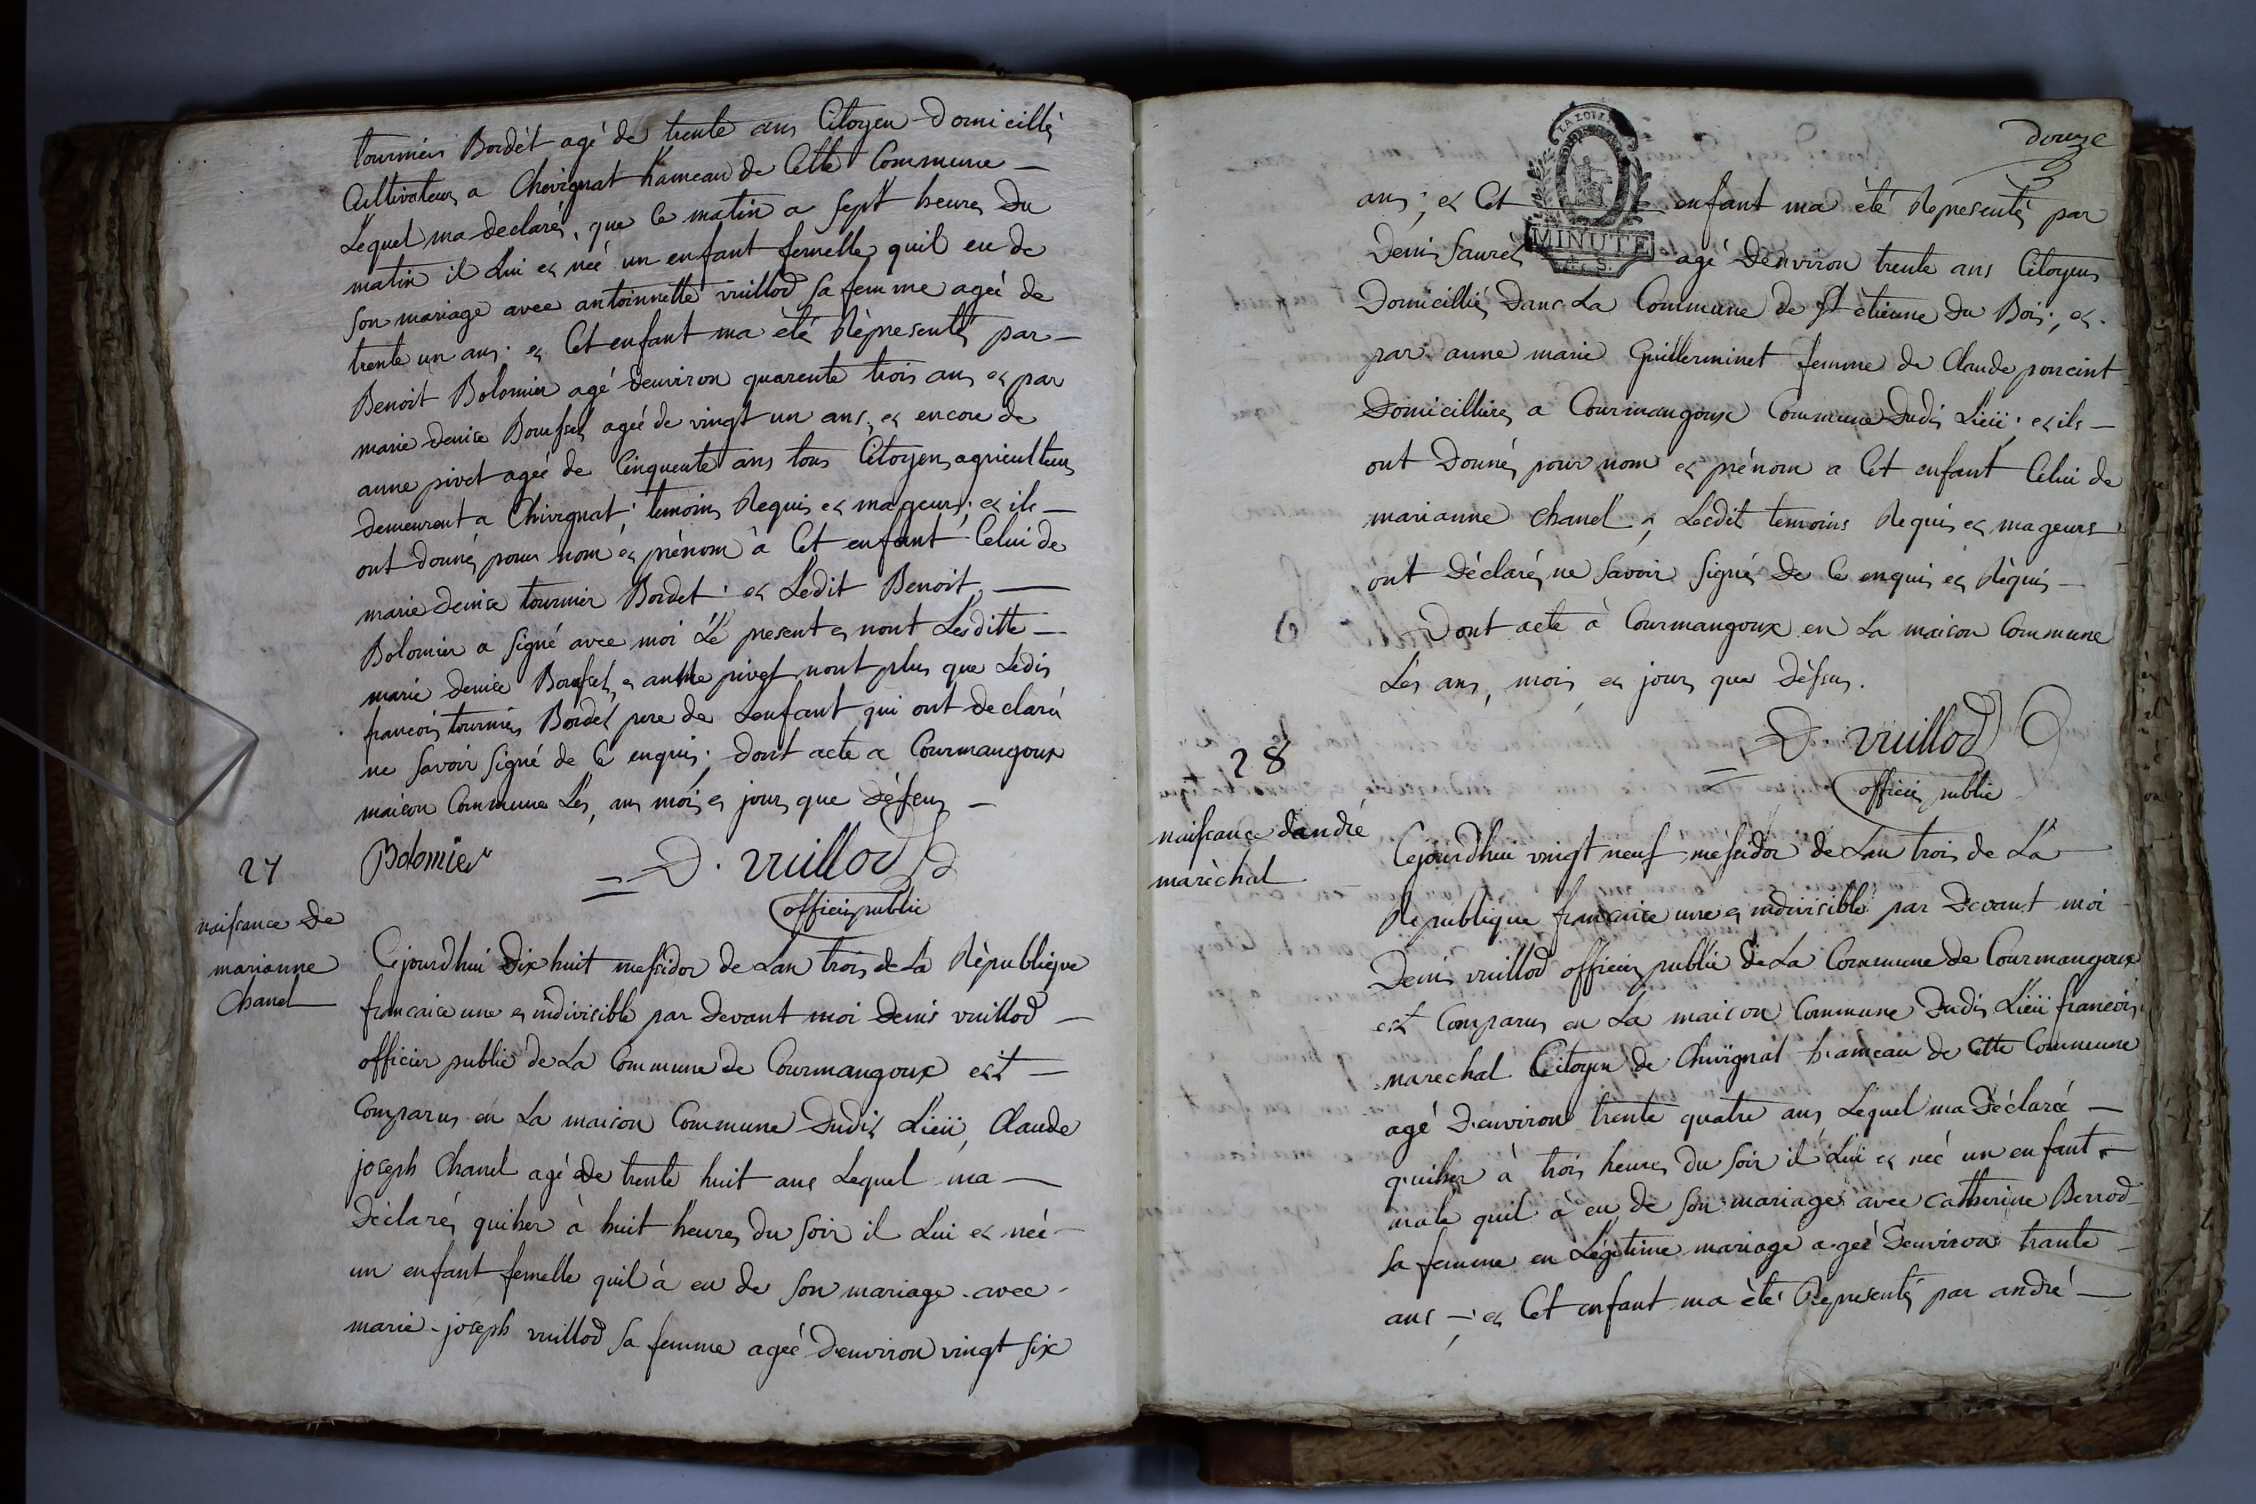 tournier Bordet agé de trente ans Citoyen Domicillié
Cultivateur a Chevignat hameau de Cette Commune —
Lequel ma declaré, que Ce matin a sept heures Du
matin il Lui es née un enfant femelle quil eu de
son mariage avec antoinnette vuillod sa femme ageé de
trente un ans ; es Cet enfant ma èté Rèpresenté par —
Benoit Bolomier agé denviron quarente trois ans es par
marie denise Bouvset agée de vingt un ans, es encore de
anne pivet ageé de Cinquente ans tous Citoyens agriculteurs
demeurent a Chivignat ; temoins Requis es mageurs ; es ils —
ont donné pour nom es prénom à Cet enfant Celui de
marie denise tournier Bordet : es Ledit Benoit —
Bolomier a signé avec moi Lé present es nont Lesditte —
marie denise es anne pivet nont plus que Ledis
francois tournier Bordet pere de Lenfant qui ont declaré
ne savoir signé de Ce enquis ; dont acte a Courmangoux
maison Commune Lés, ans mois es jours que dèssus —
Bolomier = D. vuillod
officier public
27
naissance de
marianne
Chanel
Cejourdhui dix huit messidor de Lan trois de La Rèpublique
francaise une es indivisible par devant moi denis vuillod —
officier public de La Commune de Courmangoux est —
Comparus en La maison Commune dudis Lieü, Claude
joseph Chanel agé de trente huit ans Lequel ma —
déclaré, quiher à huit heures du soir il Lui es née —
un enfant femelle quil à eu de son mariage avec
marie-joseph vuillod sa femme ageé denviron vingt six
douze
ans ; es Cet enfant ma èté Representé par
LA LOI
MINUTE
Denis agé denviron trente ans Citoyen
Domicillié dans La Commune de St ètienne du Bois ; es
par anne marie Guillerminet femme de Claude poncint
Domicilliers a Courmangoux Commune dudis Lieü ; es ils —
ont donné pour nom es prénom a Cet enfant Celui de
marianne Chanel ; Lesdit temoins Requis es mageurs
ont déclaré, ne savoir signé de Ce enquis es Rèquis —
Dont acte à Courmangoux en La maison Commune
Lés ans, mois, es jours que dèssus.
= D. vuillod
officier public
28
naissance dandré
marèchal
Cejourdhui vingt neuf méssidor de Lan trois de La
Republique francaise une es indivisible par devant moi
Denis vuillod officier public de La Commune de Courmangoux
est Comparus en La maison Commune dudis Lieü francois
marechal Citoyen de Chivignat hameau de Cette Commune
agé denviron trente quatre ans Lequel ma déclaré —
quiher à trois heures du soir il Lui es née un enfant
male quil à eu de son mariage avec catherine Berrod
sa femme en Légitime mariage ageé denviron trante
ans — ; es Cet enfant ma èté Representé par andré —